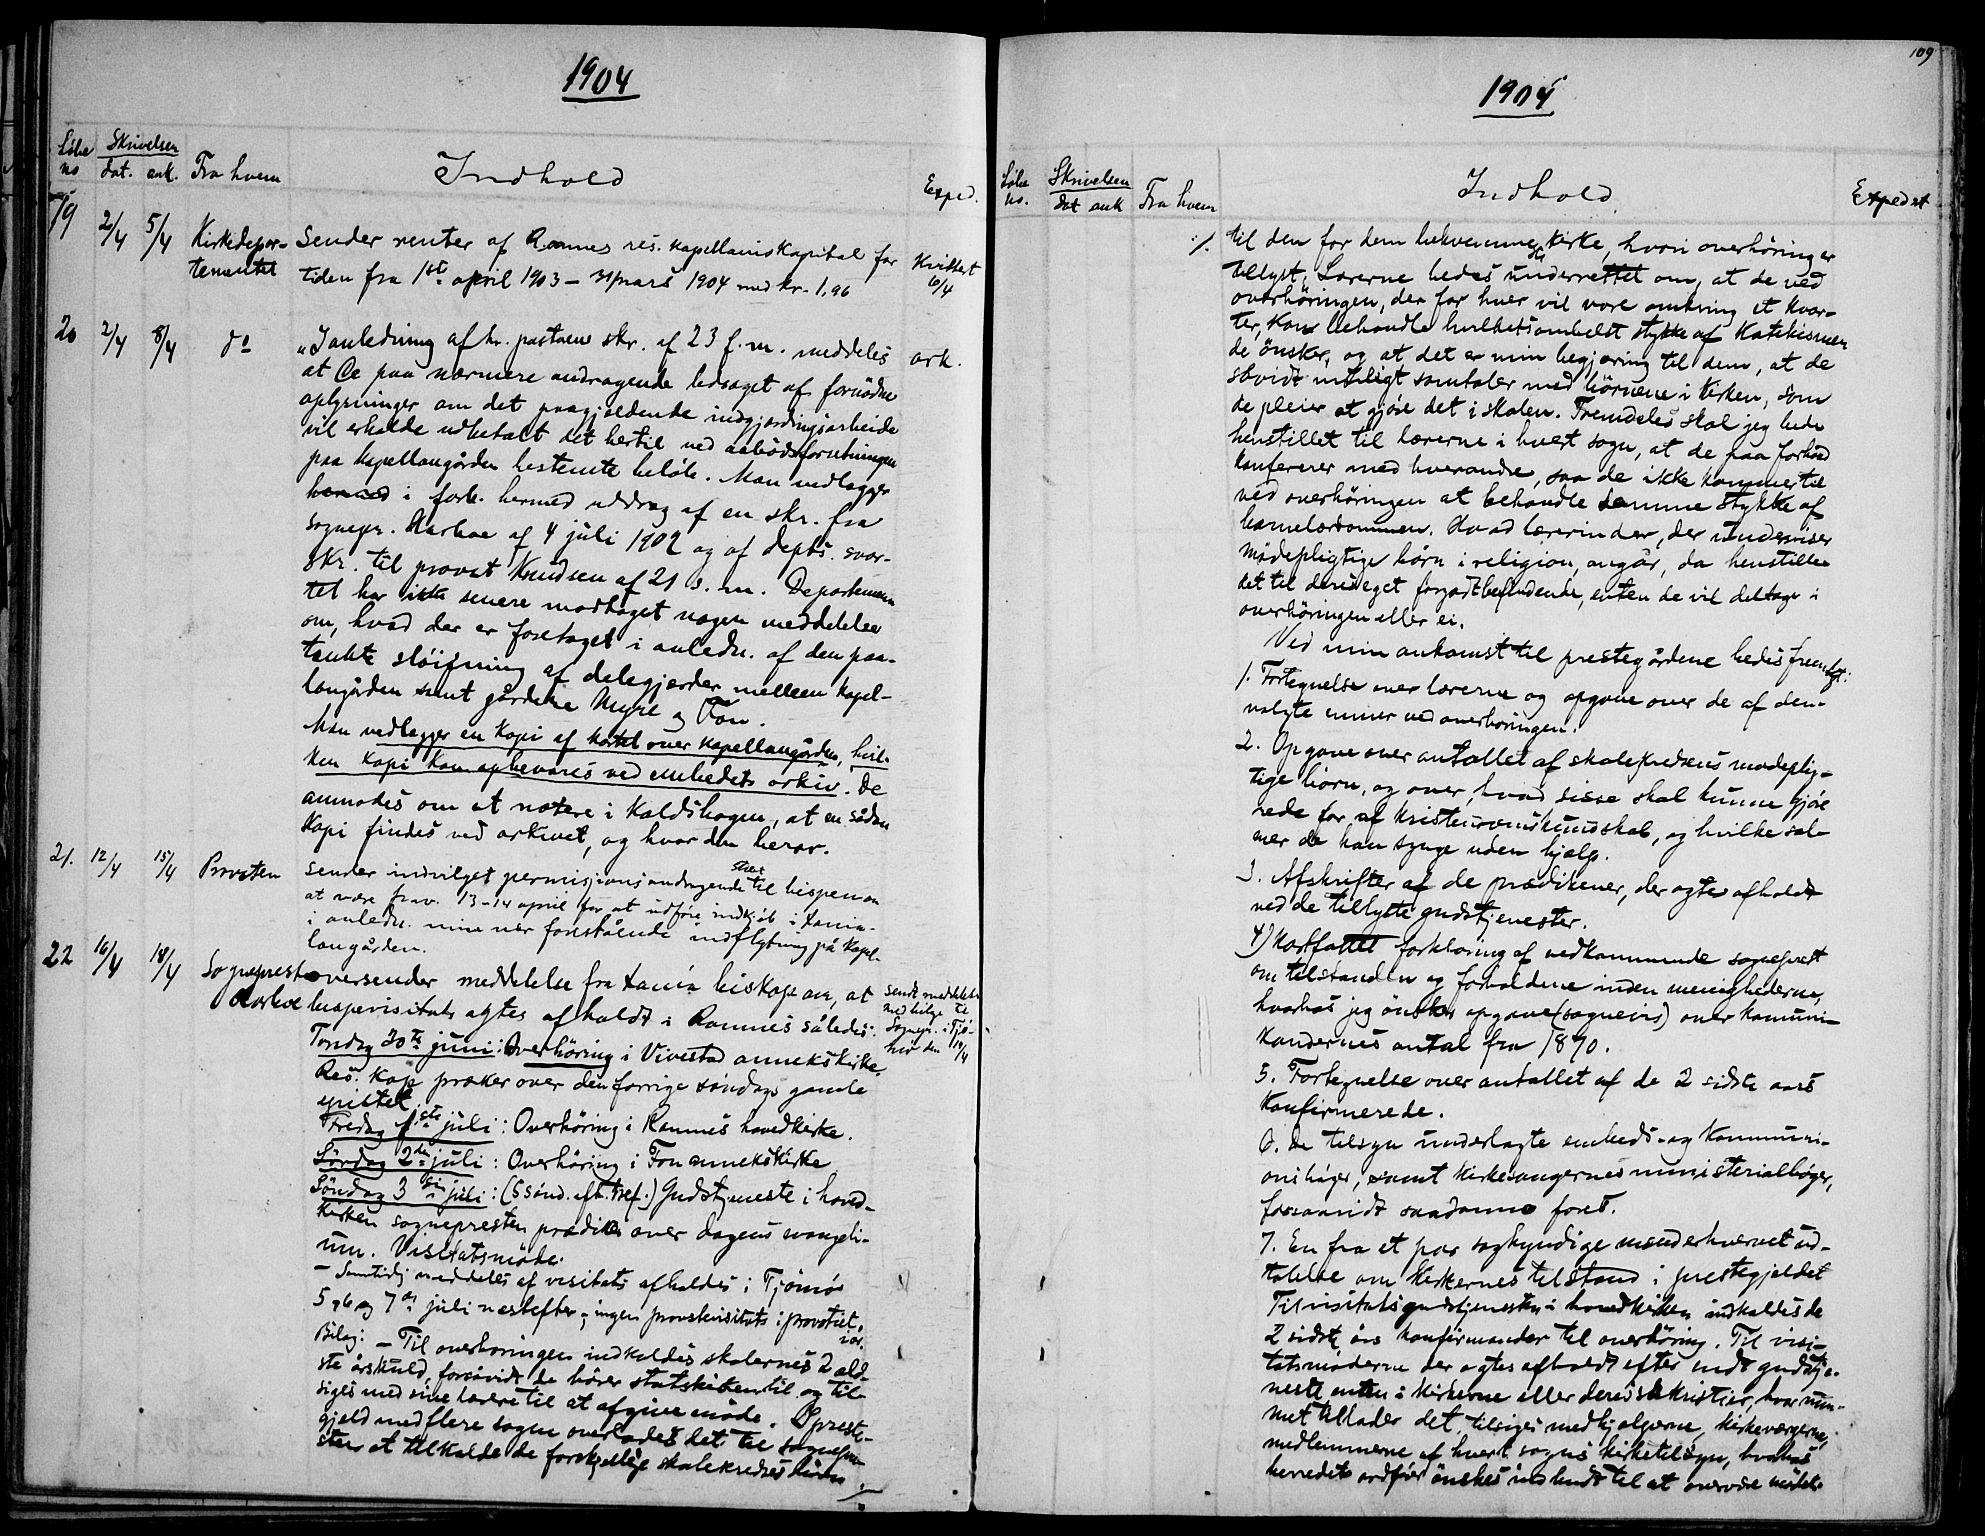 1904
Løbe no Skrivelsen dat. ank. Fra hvem Indhold Exped.
19 2/4 5/4 Kirkedepar- Sender renter af Ramnes res. kapellaniskapital for Kvittert
tementet tiden fra 1ste april 1903 – 31 mars 1904 med kr. 1,96 6/4
20 2/4 8/4 do „I anledning af hr. pastorens skr. af 23 f.m. meddeles ark.
at De paa nærmere andragende ledsaget af fornødne
oplysninger om det paagjældende indgjærdingsarbeide
vil erholde udbetalt det hertil ved aabodsforretningen
paa kapellangården bestemte beløb. Man vedlægger
hermed i forb. hermed uddrag af en skr. fra
sognepr. Aarhoe af 4 juli 1902 og af depts. svar-
skr. til provst Knudsen af 21 s.m. Departemen
tet har ikke senere modtaget nogen meddelelse
om, hvad der er foretaget i anledn. af den paa-
tænkte sløifning af delegjærder mellem kapel-
langården samt gårdene Myre og Fon.
Man vedlægger en kopi af kartet over kapellangården, hvil-
ken kopi kan opbevares ved embedets arkiv. De
anmodes om at notere i kaldsbogen, at en sådan
kopi findes ved arkivet, og hvor den beror.
21. 12/4 15/4 Provsten sender indvilget permisjonsandragende til bispen om
at være frav. 13–14 april for at udføre indkjøb i
i anledn. min nær forestående indflytning på kapel-
langården.
22 16/4 18/4 Sogneprest oversender meddelelse fra biskopen om, at sendt meddelelse
Aarhoe bispevisitats agtes afholdt i Ramnes således: med bilag til
Torsdag 30te juni: Overhøring i Vivestad annekskirke. Sognepr. i Tjø-
Res. kap. præker over den forrige søndags gamle
epistel.
Fredag 1ste juli: Overhøring i Ramnes hovedkirke.
Lørdag 2den juli: Overhøring i Fon annekskirke
Søndag 3die juli: (5 sønd. eft. tref.) Gudstjeneste i hoved-
kirken sognepresten prædiker over dagens evangeli-
um. Visitatsmøde.
– Samtidig meddeles at visitats afholdes i Tjømø
5, 6 og 7de juli næstefter; ingen provstevisitats i provstiet
iår.
Bilag: – Til overhøringen indkaldes skolernes 2 æld-
ste årskuld, forsåvidt de hører statskirken til og til-
siges med sine lærere til at afgive møde. I preste-
gjeld med flere sogne overlades det til sognepre-
sten at tilkalde de forskjellige skolekredses børn
./.
109
1904
Løbe no. Skrivelsen dat ank Fra hvem Indhold. Expedert
./. til den for dem bekvemme kirke, hvori overhøring er
tillyst. Lærerne bedes underrettet om, at de ved
overhøringen, der for hver vil vare omkring et kvar-
ter, kan behandle hvilketsomhelst stykke af katekismen
de ønsker, og at det er min begjæring til dem, at de
såvidt muligt samtaler med børnene i kirken, som
de pleier at gjøre det i skolen. Fremdeles skal jeg bede
henstillet til lærerne i hvert sogn, at de paa forhånd
konfererer med hverandre, saa de ikke kommer til
ved overhøringen at behandle samme stykke af
barnelærdommen. Hvad lærerinder, der underviser
mødepligtige børn i religion, angår, da henstilles
det til deres eget forgodtbefindende, enten de vil deltage i
overhøringen eller ei.
Ved min ankomst til prestegårdene bedes fremlagt:
1. Fortegnelse over lærerne og opgave over de af dem
valgte emner ved overhøringen.
2. Opgave over antallet af skolekredsens mødeplig-
tige børn, og over, hvad disse skal kunne gjøre
rede for af kristendomskundskab, og hvilke sal-
mer de kan synge uden hjælp.
3. Afskrifter af de prædikener, der agtes afholdt
ved de tillyste gudstjenester.
4) Kortfattet forklaring af vedkommende sogneprest
om tilstanden og forholdene inden menighederne,
hvorhos jeg ønsker opgave (sognevis) over kommuni-
kandernes antal fra 1890.
5. Fortegnelse over antallet af de 2 sidste aars
konfirmerede.
6. De tilsyn underlagte embeds- og kommuni-
onsbøger, samt kirkesangernes ministerialbøger,
forsaavidt saadanne føres.
7. En fra et par sagkyndige mænd erhvervet ud-
talelse om kirkernes tilstand i prestegjeldet
Til visitatsgudstjenesten i hovedkirken indkaldes de
2 sidste års konfirmander til overhøring. Til visi-
tatsmøderne der agtes afholdt efter endt gudstje-
neste enten i kirkerne eller deres sakristier, hvor rum-
met tillader det, tilsiges medhjelperne, kirkeværgerne,
medlemmerne af hvert sogns kirketilsyn, hvorhos
herredets ordfører ønskes indbudt til at overvære mødet.